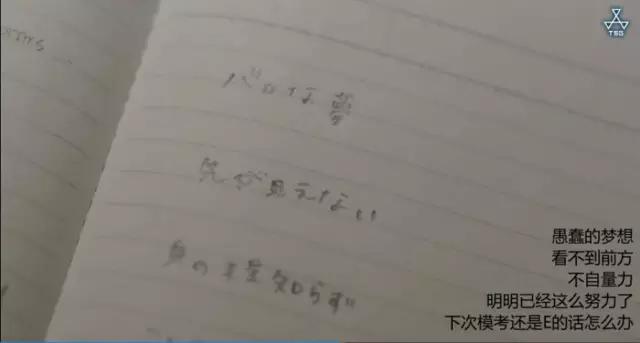 TSG
バカな夢
先が見えない
身の程知らず
愚蠢的梦想
看不到前方
不自量力
明明已经这么努力了
下次模考还是E的话怎么办